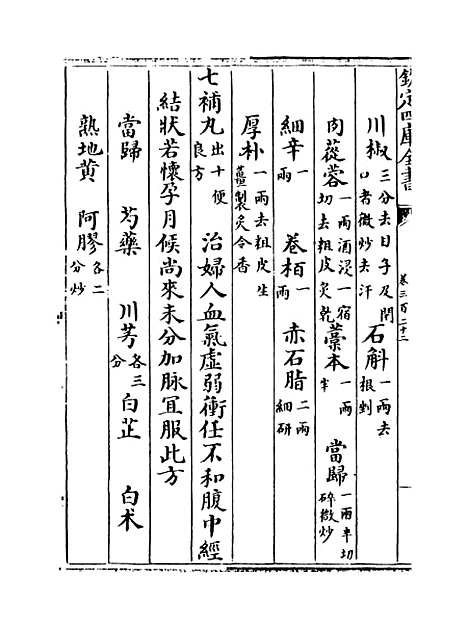 欽定四庫全書
卷三百二十二
川椒三分去目子及閉口者微炒去汗　石斛一兩去根剉
肉蓯蓉一兩酒浸一宿切去粗皮炙乾　藁本一兩　當歸一兩切碎微炒
細辛一兩　卷栢一兩　赤石脂二兩細研
厚朴一兩去粗皮生薑製炙令香
七補丸出十便良方　治婦人血氣虛弱衝任不和腹中經
結狀若懷孕月候尚來未分加脉宜服此方
當歸　芍藥　川芎各三分　白芷　白术
熟地黄　阿膠各二分炒